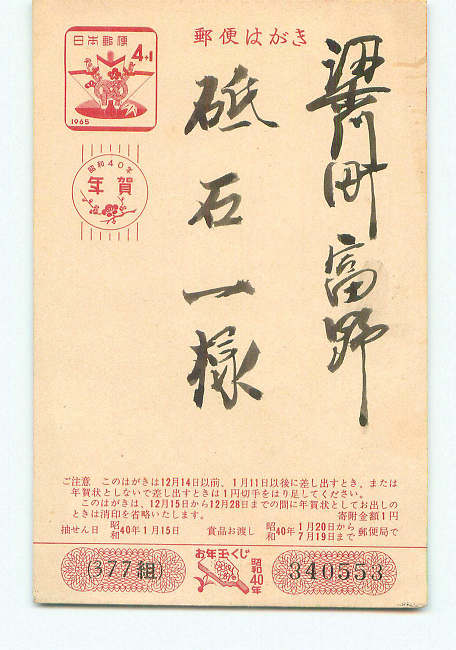 日本郵便
4+1
1965
郵便はがき
昭和40年
年賀
梁川町富野
砥石一様
ご注意 このはがきは12月14日以前、1月11日以後に差し出すとき、または
年賀状としないで差し出すときは1円切手をはり足してください。
このはがきは、12月15日から12月28日までの間に年賀状としてお出しの
ときは消印を省略いたします。 寄附金額1円
抽せん日 昭和40年1月15日 賞品お渡し 昭和40年 1月20日から 7月19日まで 郵便局で
(377組)
お年玉くじ
昭和40年
340553